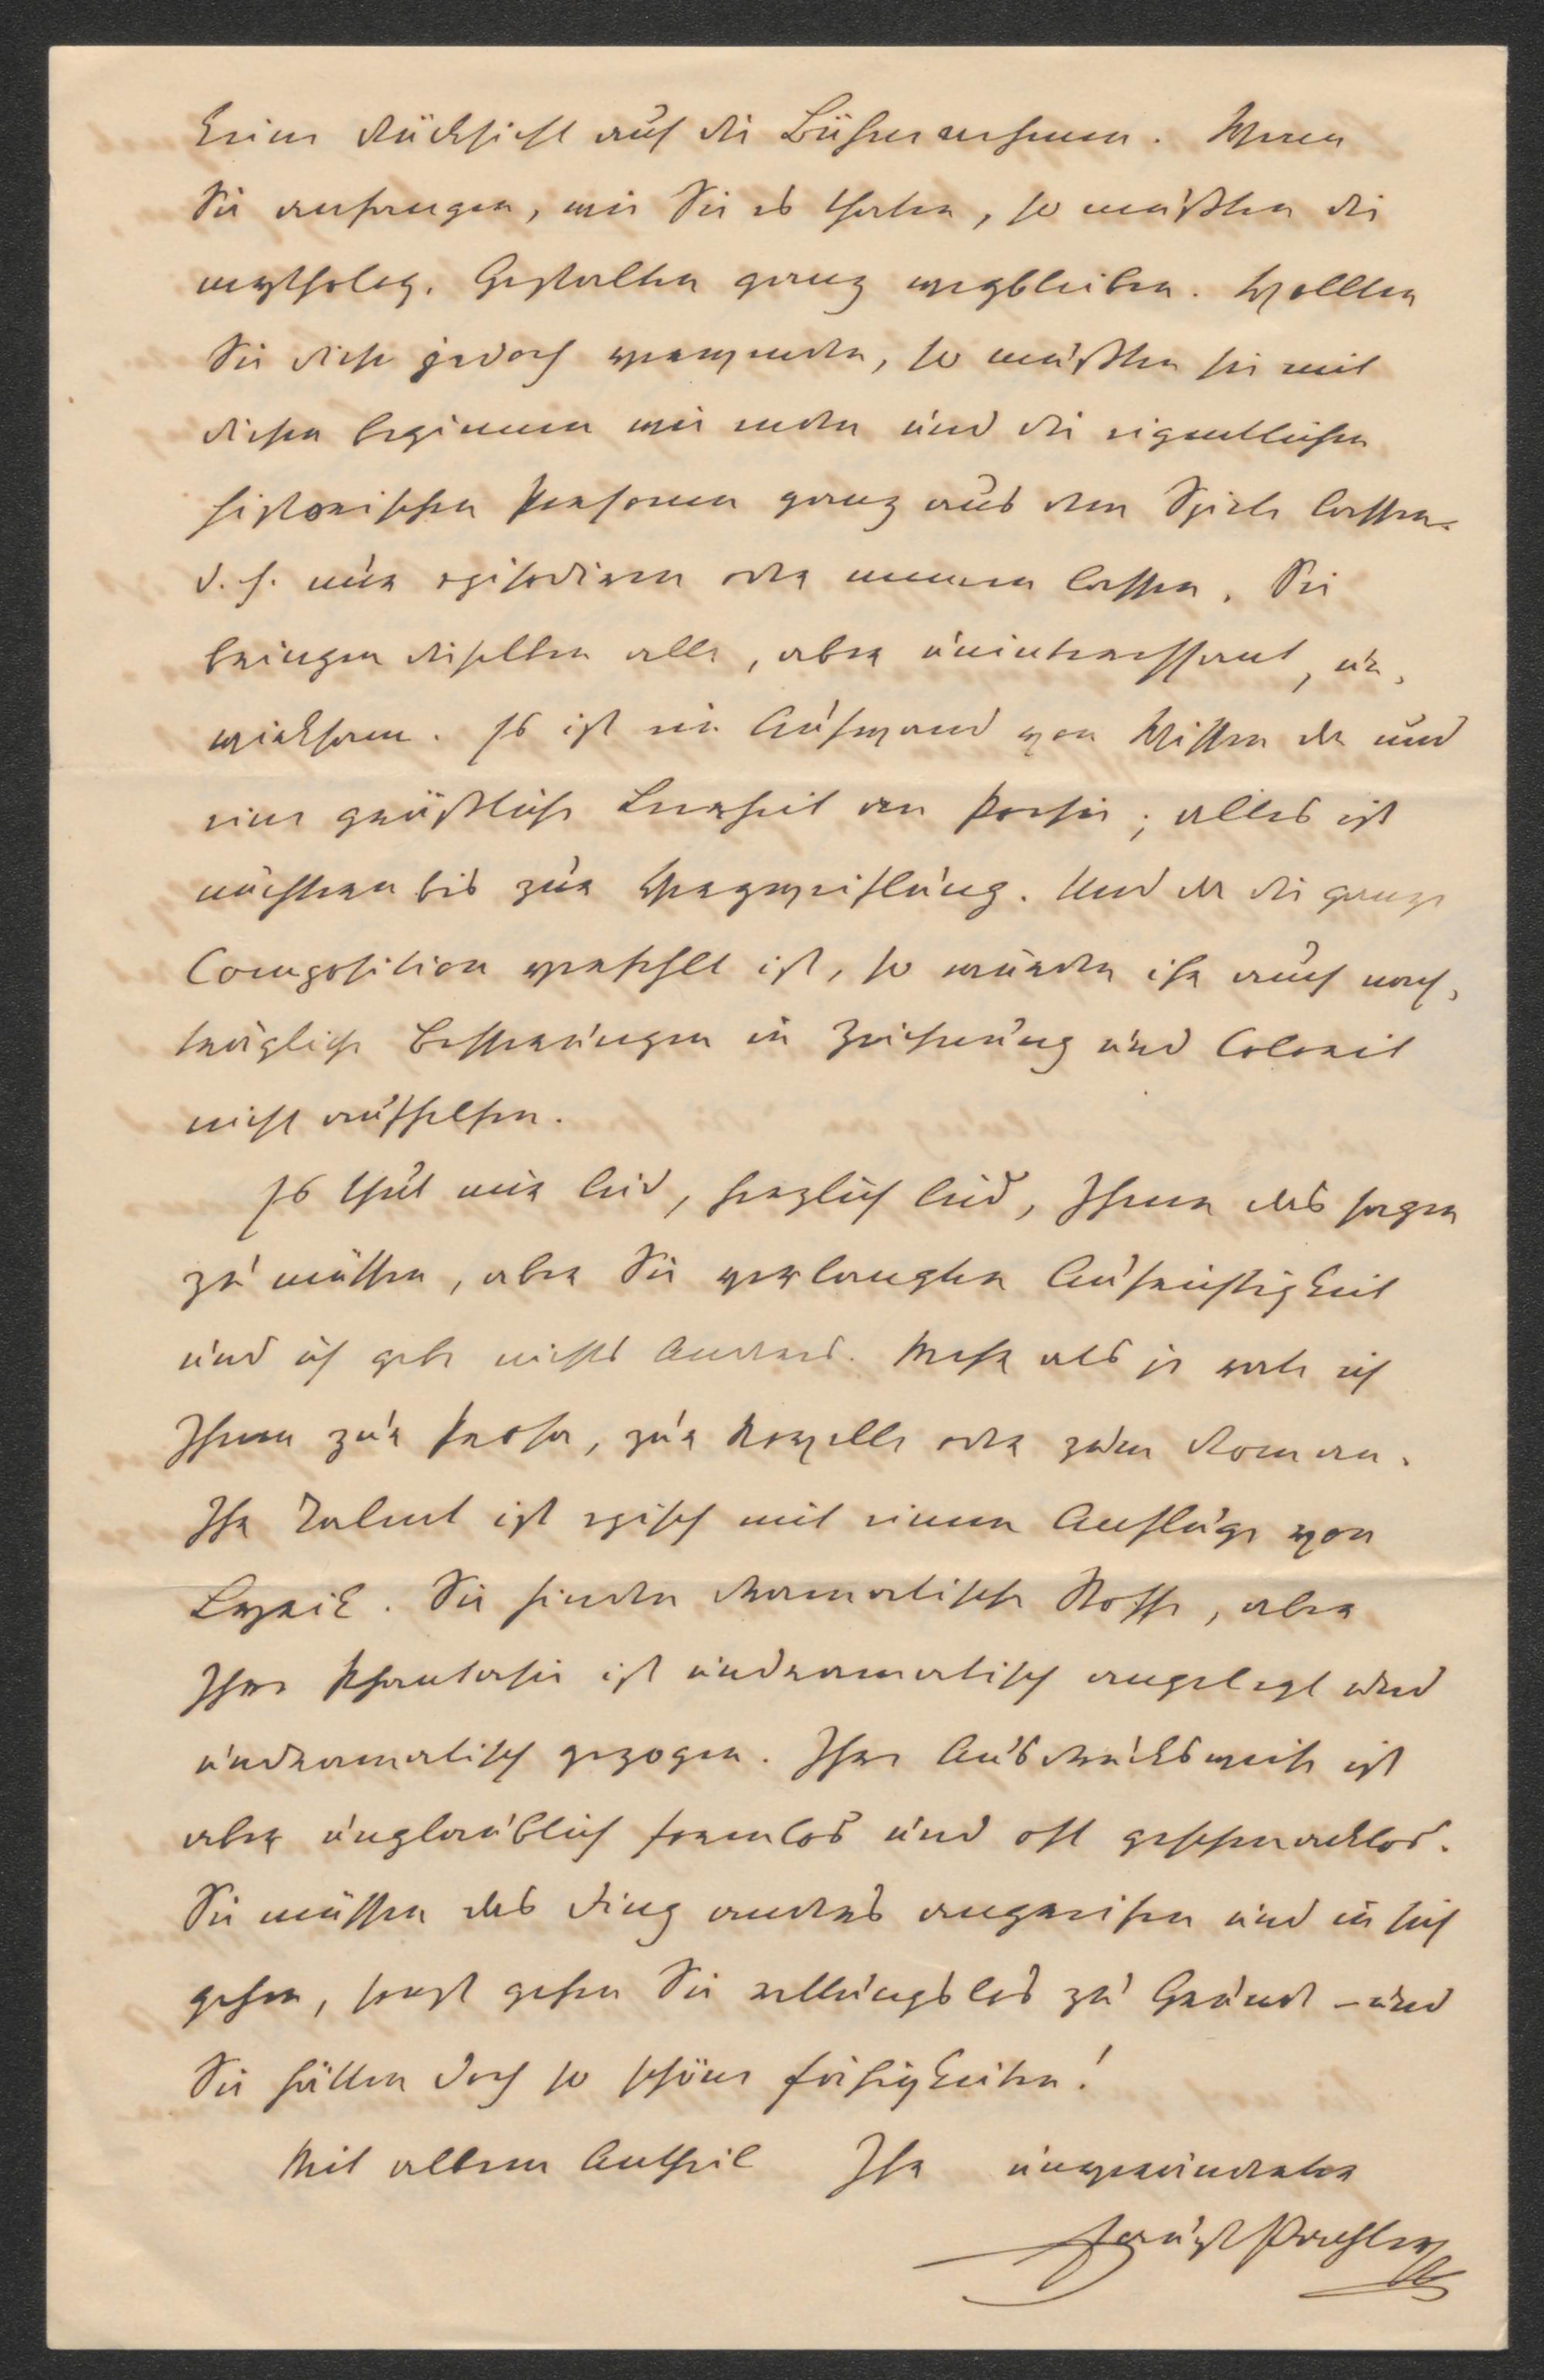 keine Rücksicht auf die Bühne nehmen. Wenn
Sie anfangen, wie Sie es thaten, so müßten die
mytholog. Gestalten ganz wegbleiben. Wollten
Sie diese jedoch verwenden, so müßten sie mit
diesen beginnen wie enden und die eigentlichen
historischen Personen ganz aus dem Spiele lassen
d. h. nur episodiren oder nennen lassen. Sie
bringen dieselben alle, aber uninteressant, un-
wirksam. Es ist ein Aufwand von Wissen da und
eine gräßliche Leerheit an Poesie; alles ist
nüchtern bis zur Verzweiflung. Und da die ganze
Composition verfehlt ist, so würden ihr auch nach-
trägliche Besserungen in Zeichnung und Colorit
nicht aufhelfen.
Es thut mir leid, herzlich leid, Ihnen das sagen
zu müssen, aber Sie verlangten Aufrichtigkeit
und ich gebe nichts Anderes. Mehr als je rathe ich
Ihnen zur Prosa, zur Novelle oder zum Roman.
Ihr Talent ist episch mit einem Anfluge von
Lyrik. Sie finden dramatische Stoffe, aber
Ihre Phantasie ist undramatisch angelegt und
undramatisch gezogen. Ihre Ausdrucksweise ist
aber unglaublich formlos und oft geschmacklos.
Sie müssen das Ding anders angreifen und in sich
gehen, sonst gehen Sie rettungslos zu Grunde – und
Sie hätten doch so schöne Fähigkeiten!
Mit altem Antheil Ihr unveränderter
Faust Pachler